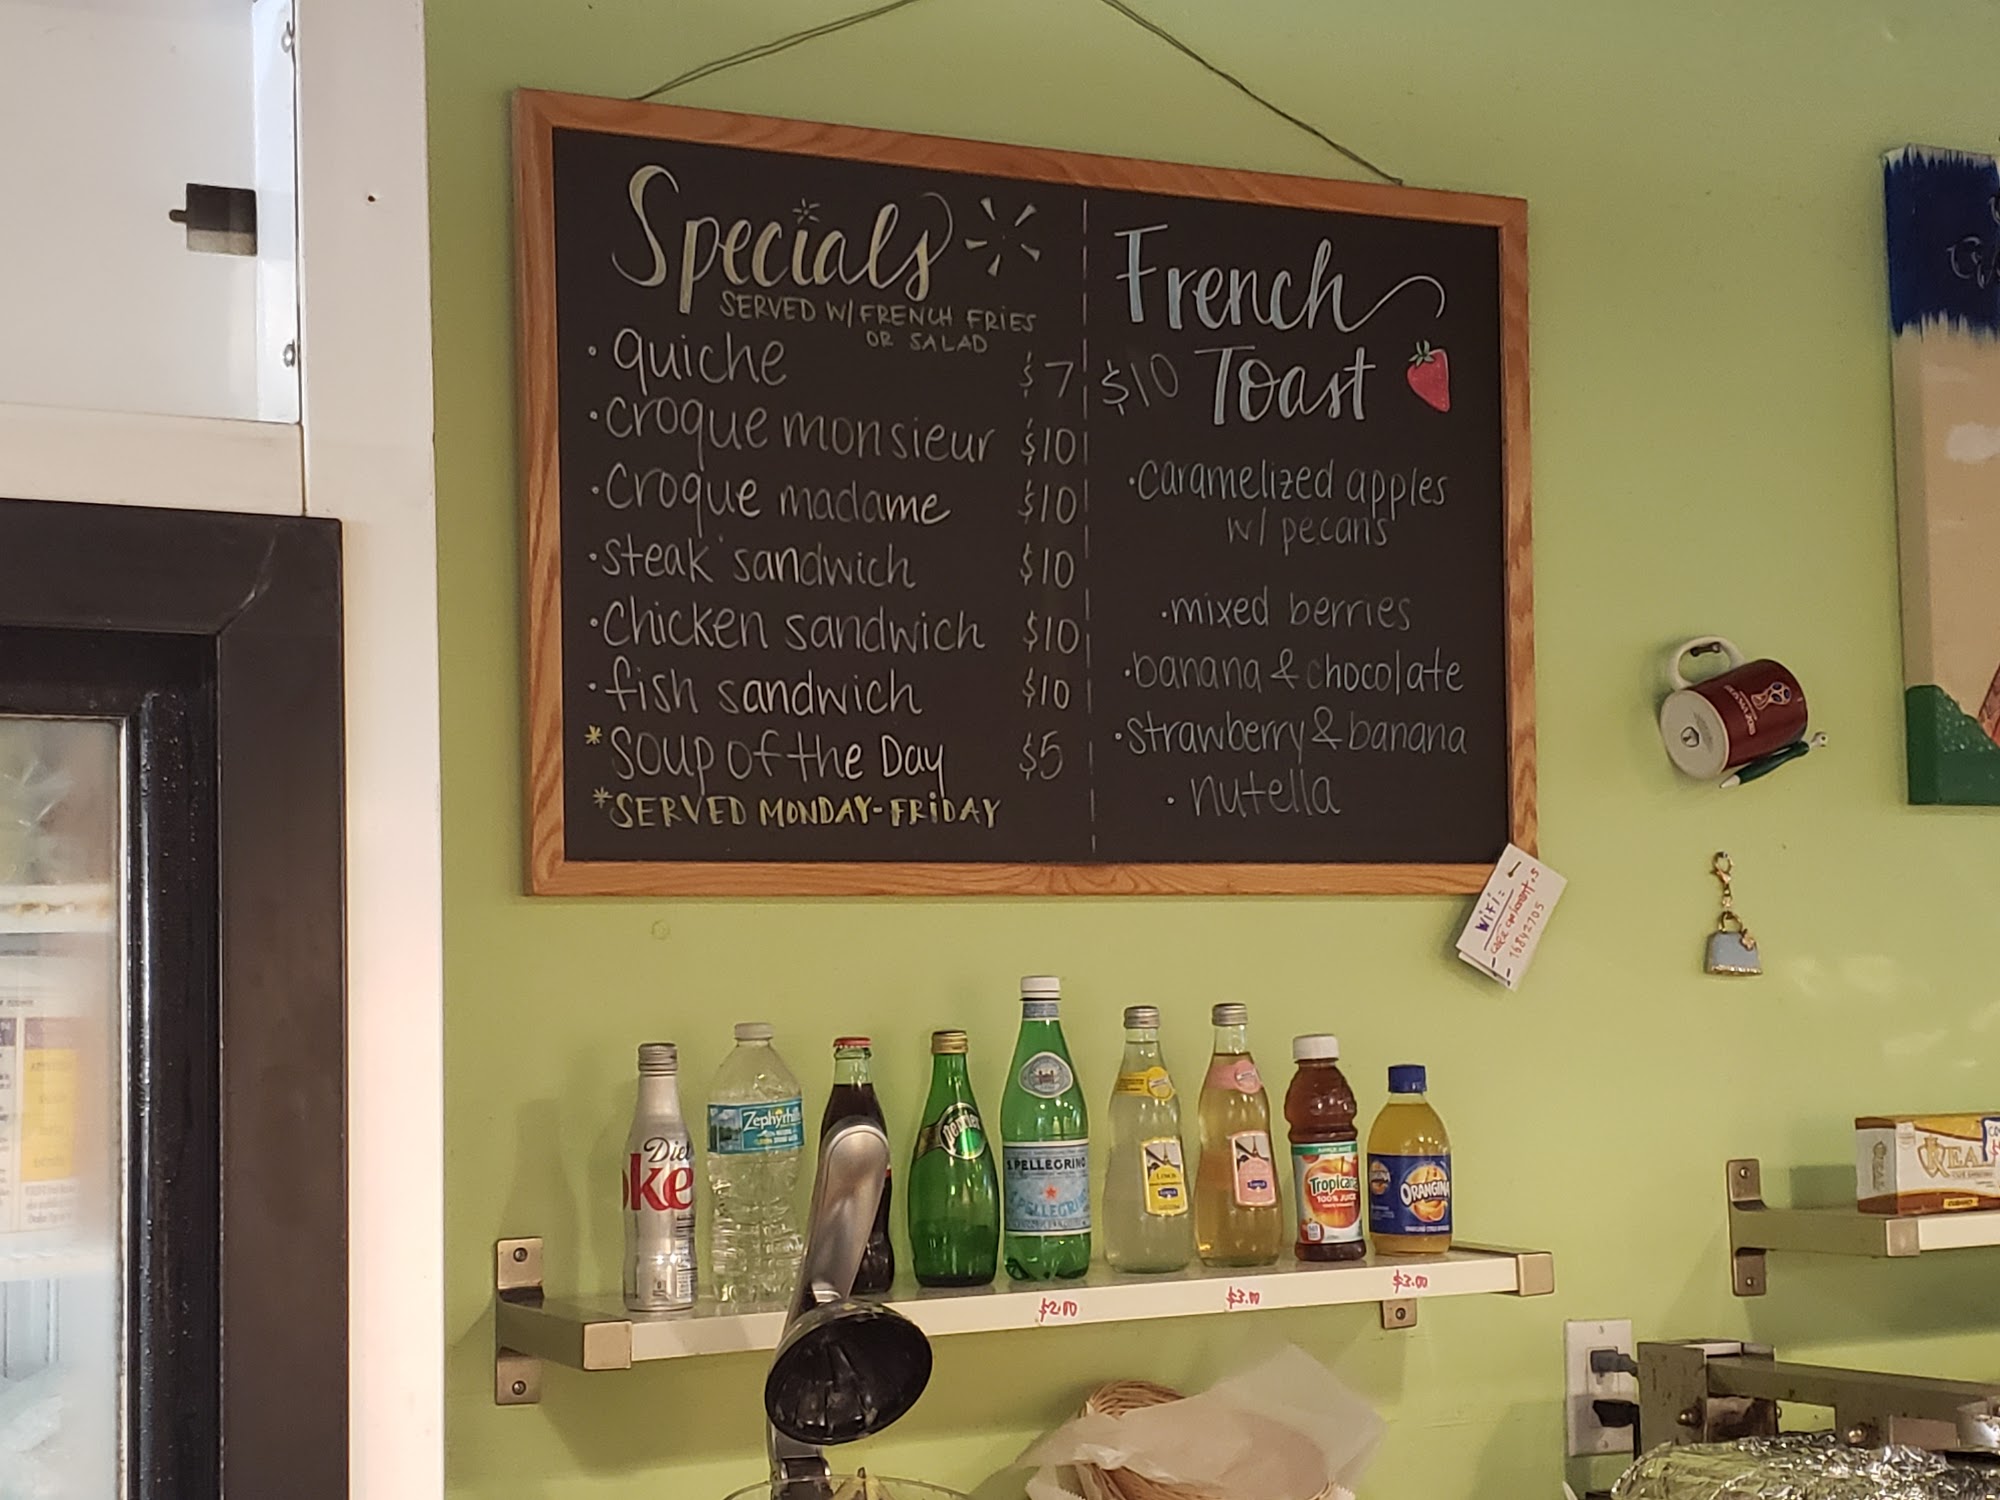 Specials
SERVED W/ FRENCH FRIES
OR SALAD
• quiche $7
• croque monsieur $10
• croque madame $10
• steak sandwich $10
• chicken sandwich $10
• fish sandwich $10
* Soup of the Day $5
* SERVED MONDAY-FRIDAY
French
$10 Toast
• caramelized apples
w/ pecans
• mixed berries
• banana & chocolate
• strawberry & banana
• nutella
WiFi:
16842705
Diet
oke
Zephyrhi
perrier
S.PELLEGRINO
S.PELLEGRINO
APPLE JUICE
Tropicana
100% JUICE
ORANGINA
$2.00
$3.00
$3.00